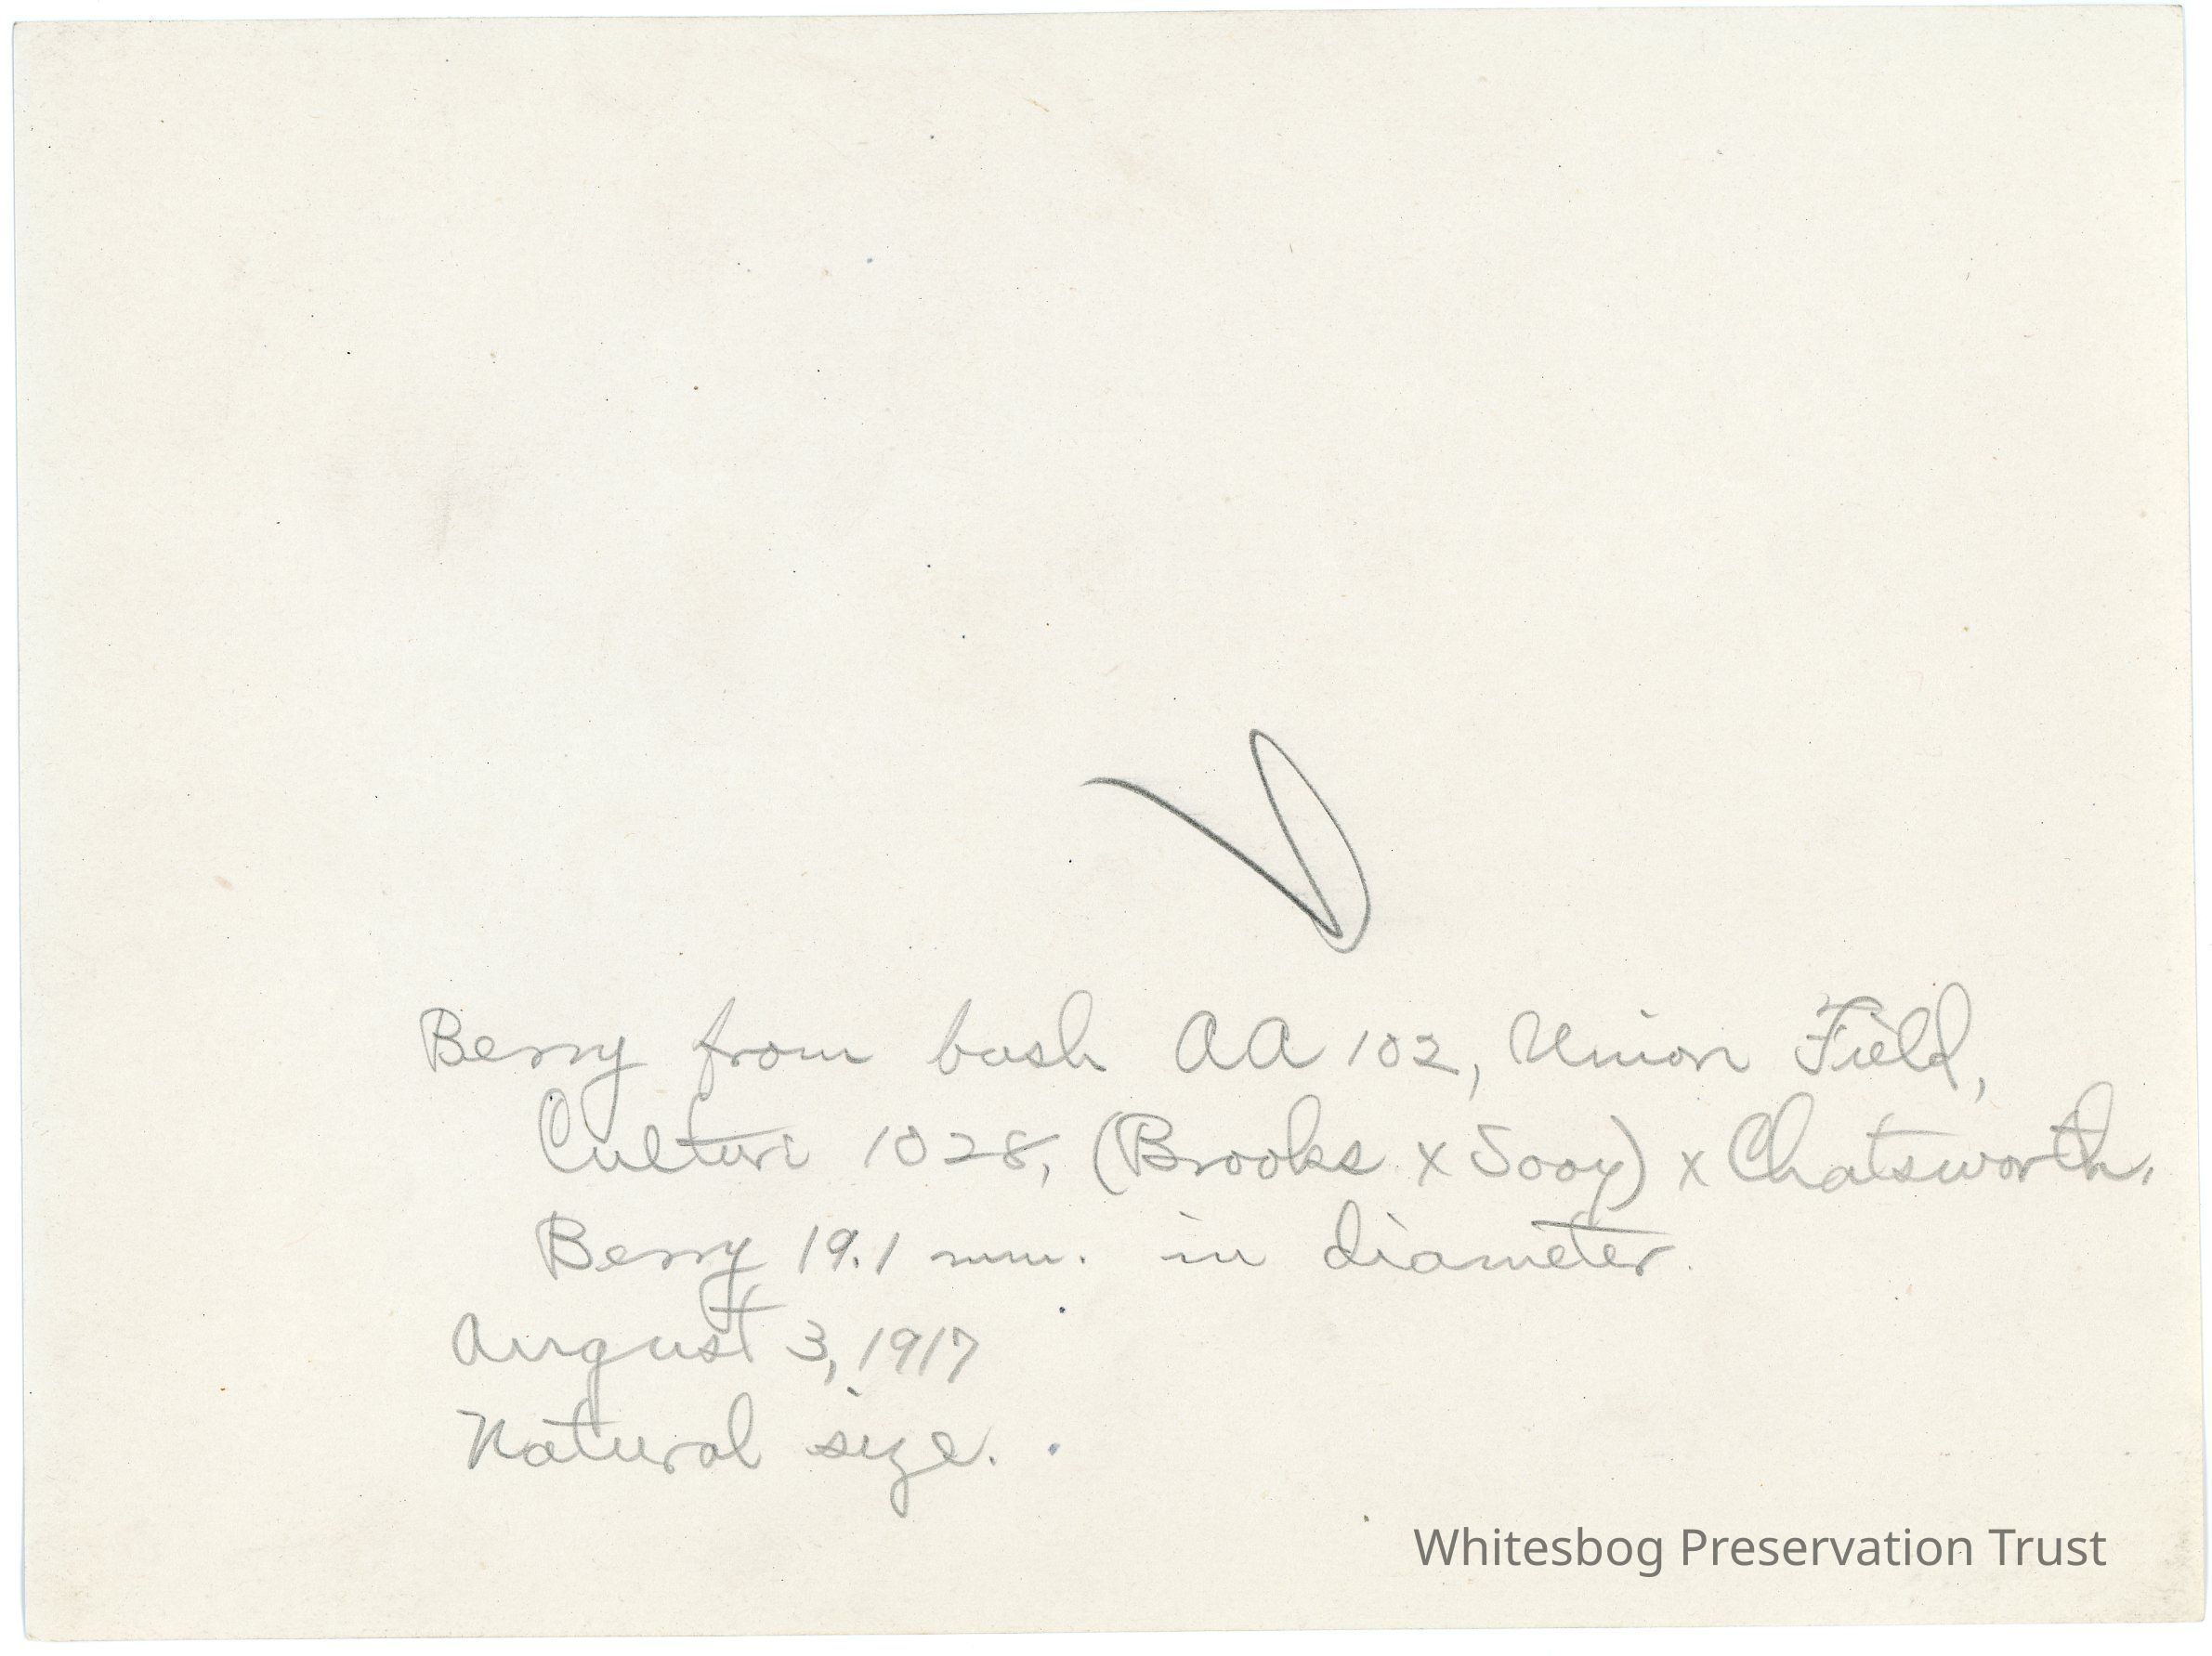 Berry from bush AA 102, Union Field,
Culture 1028, (Brooks x Sooy) x Chatsworth.
Berry 19.1 mm. in diameter.
August 3, 1917
Natural size.
Whitesbog Preservation Trust